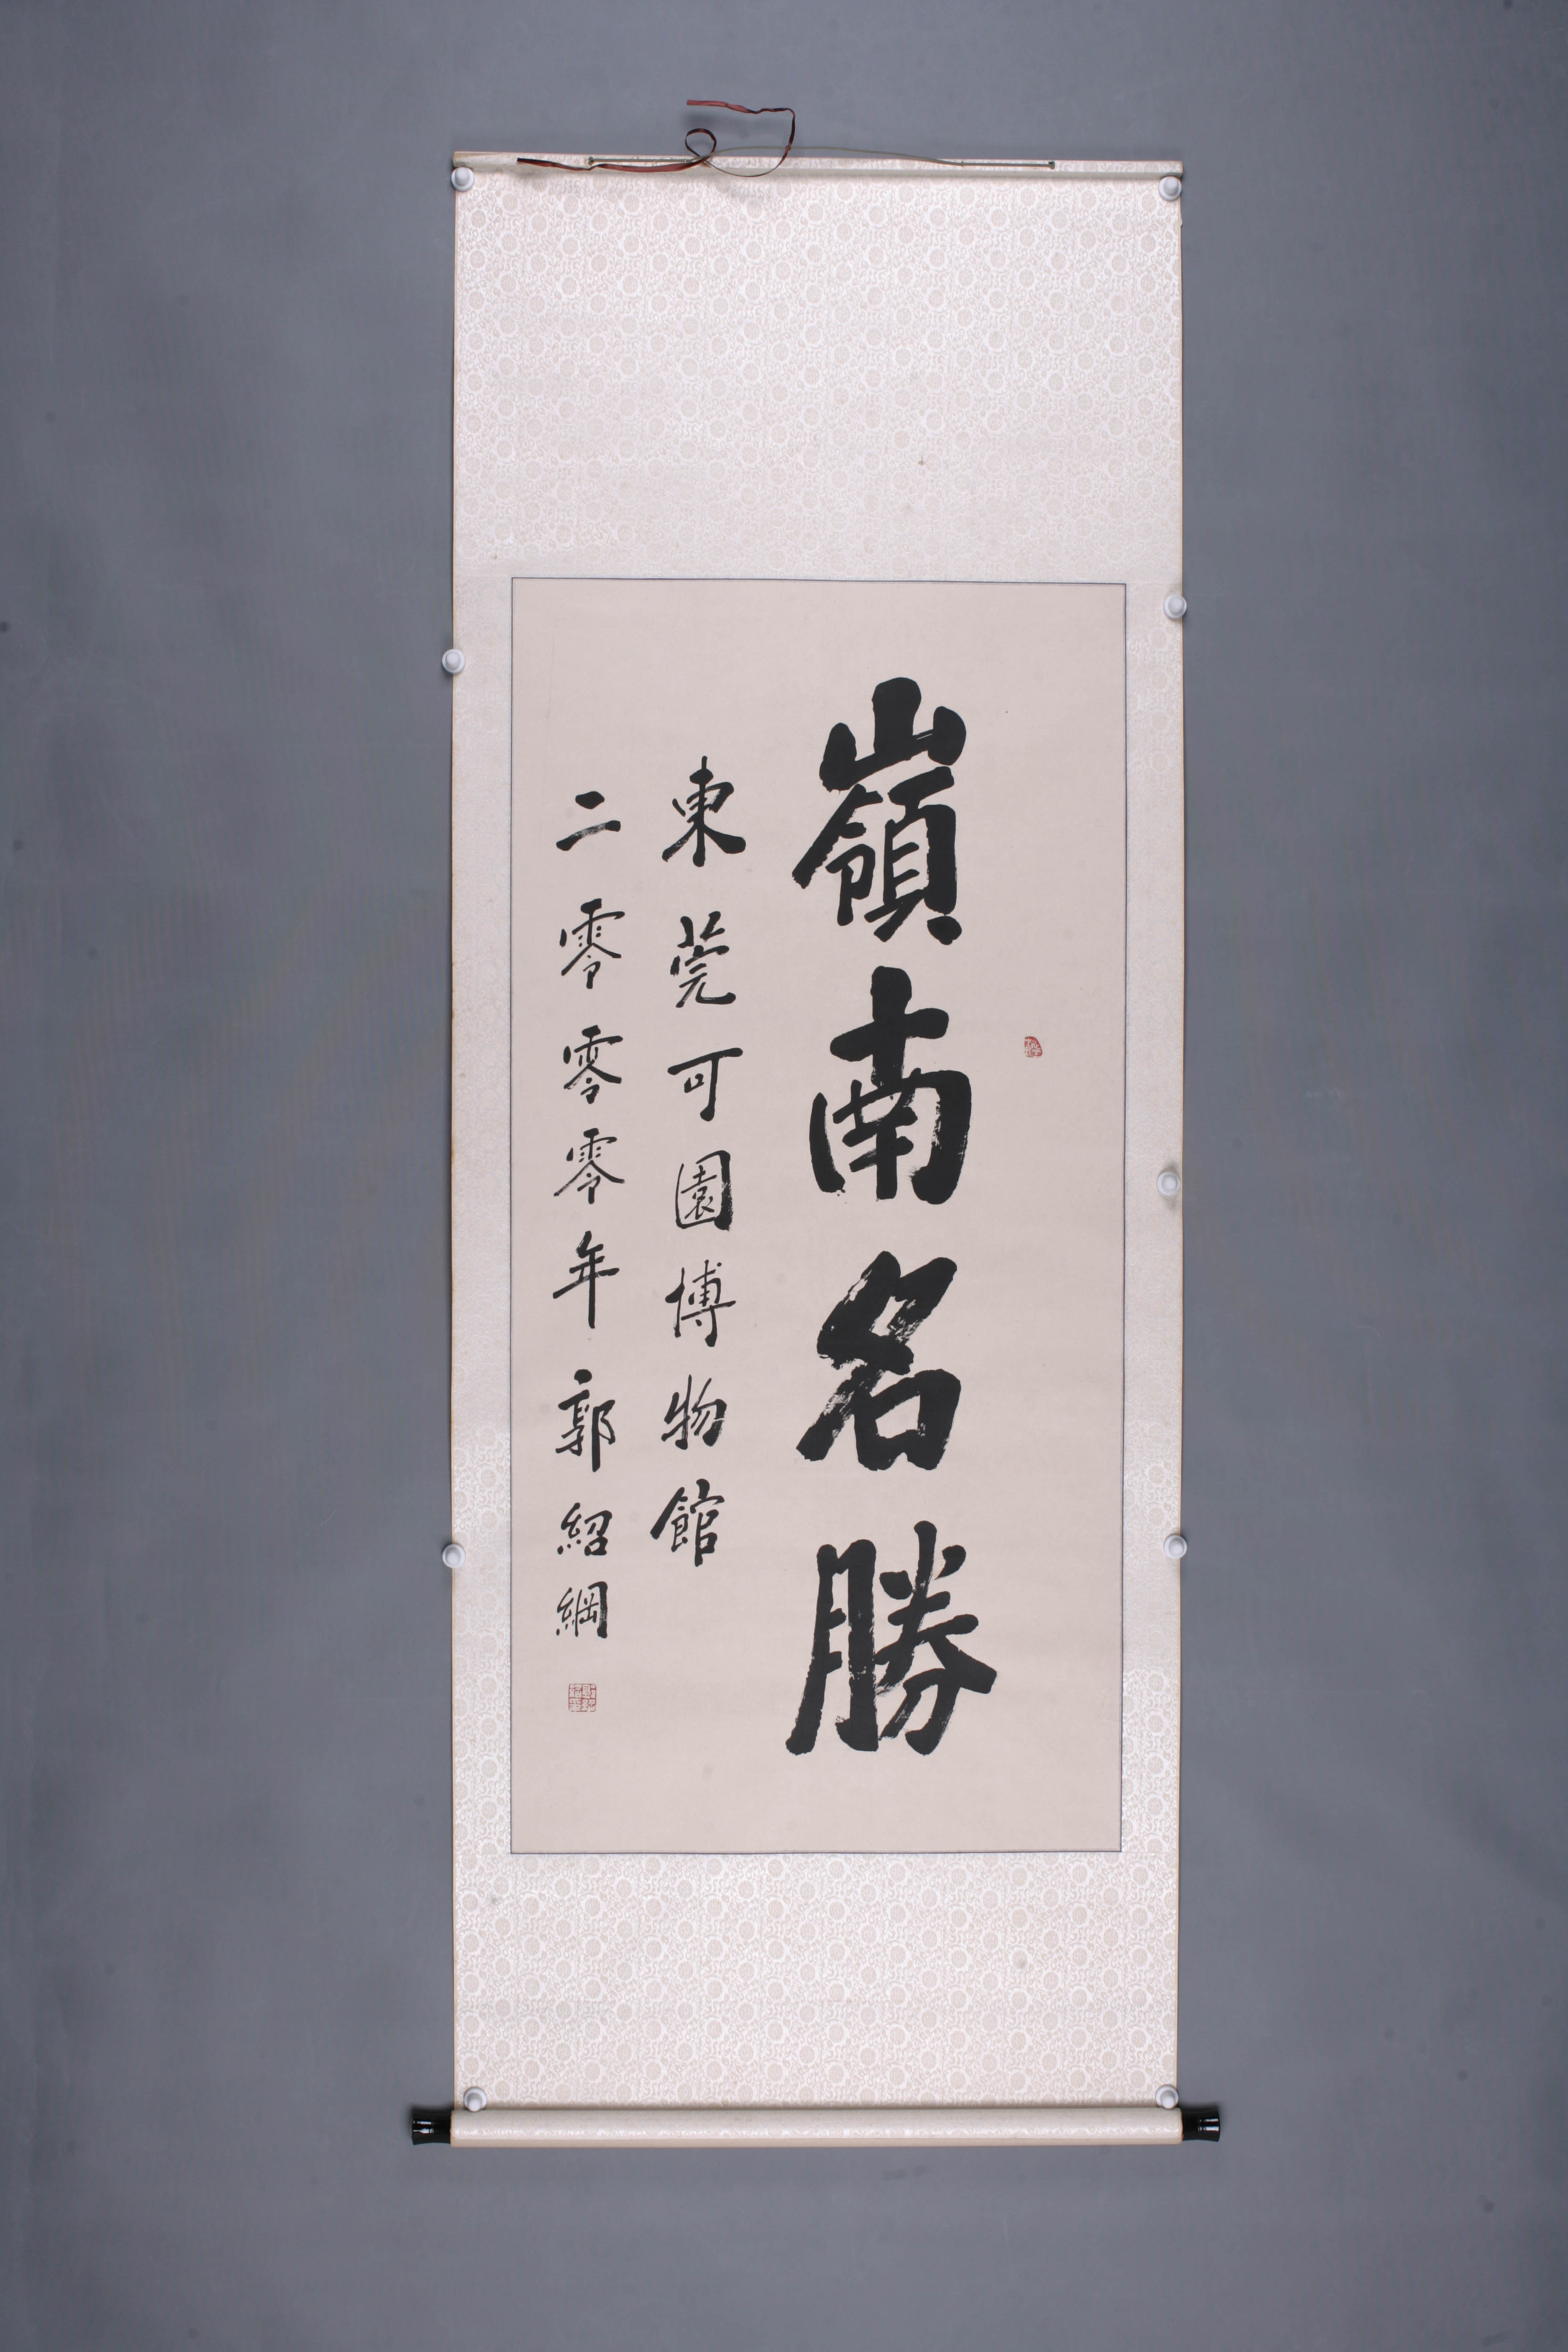 嶺南名勝
東莞可園博物館
二零零零年郭紹綱